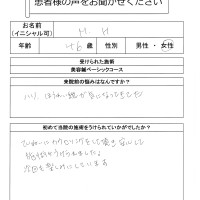 患者様の声をお聞かせください
お名前
(イニシャル可)
M . H
年齢 46 歳 性別 男性 ・ 女性
受けられた施術
美容鍼ベーシックコース
来院前の悩みはなんですか?
ハリ、ほうれい線が気になってきた
初めて当院の施術をうけられていかがでしたか?
ていねいにカウンセリングをして頂き安心して
施術をうけられました。
次回を楽しみにしています